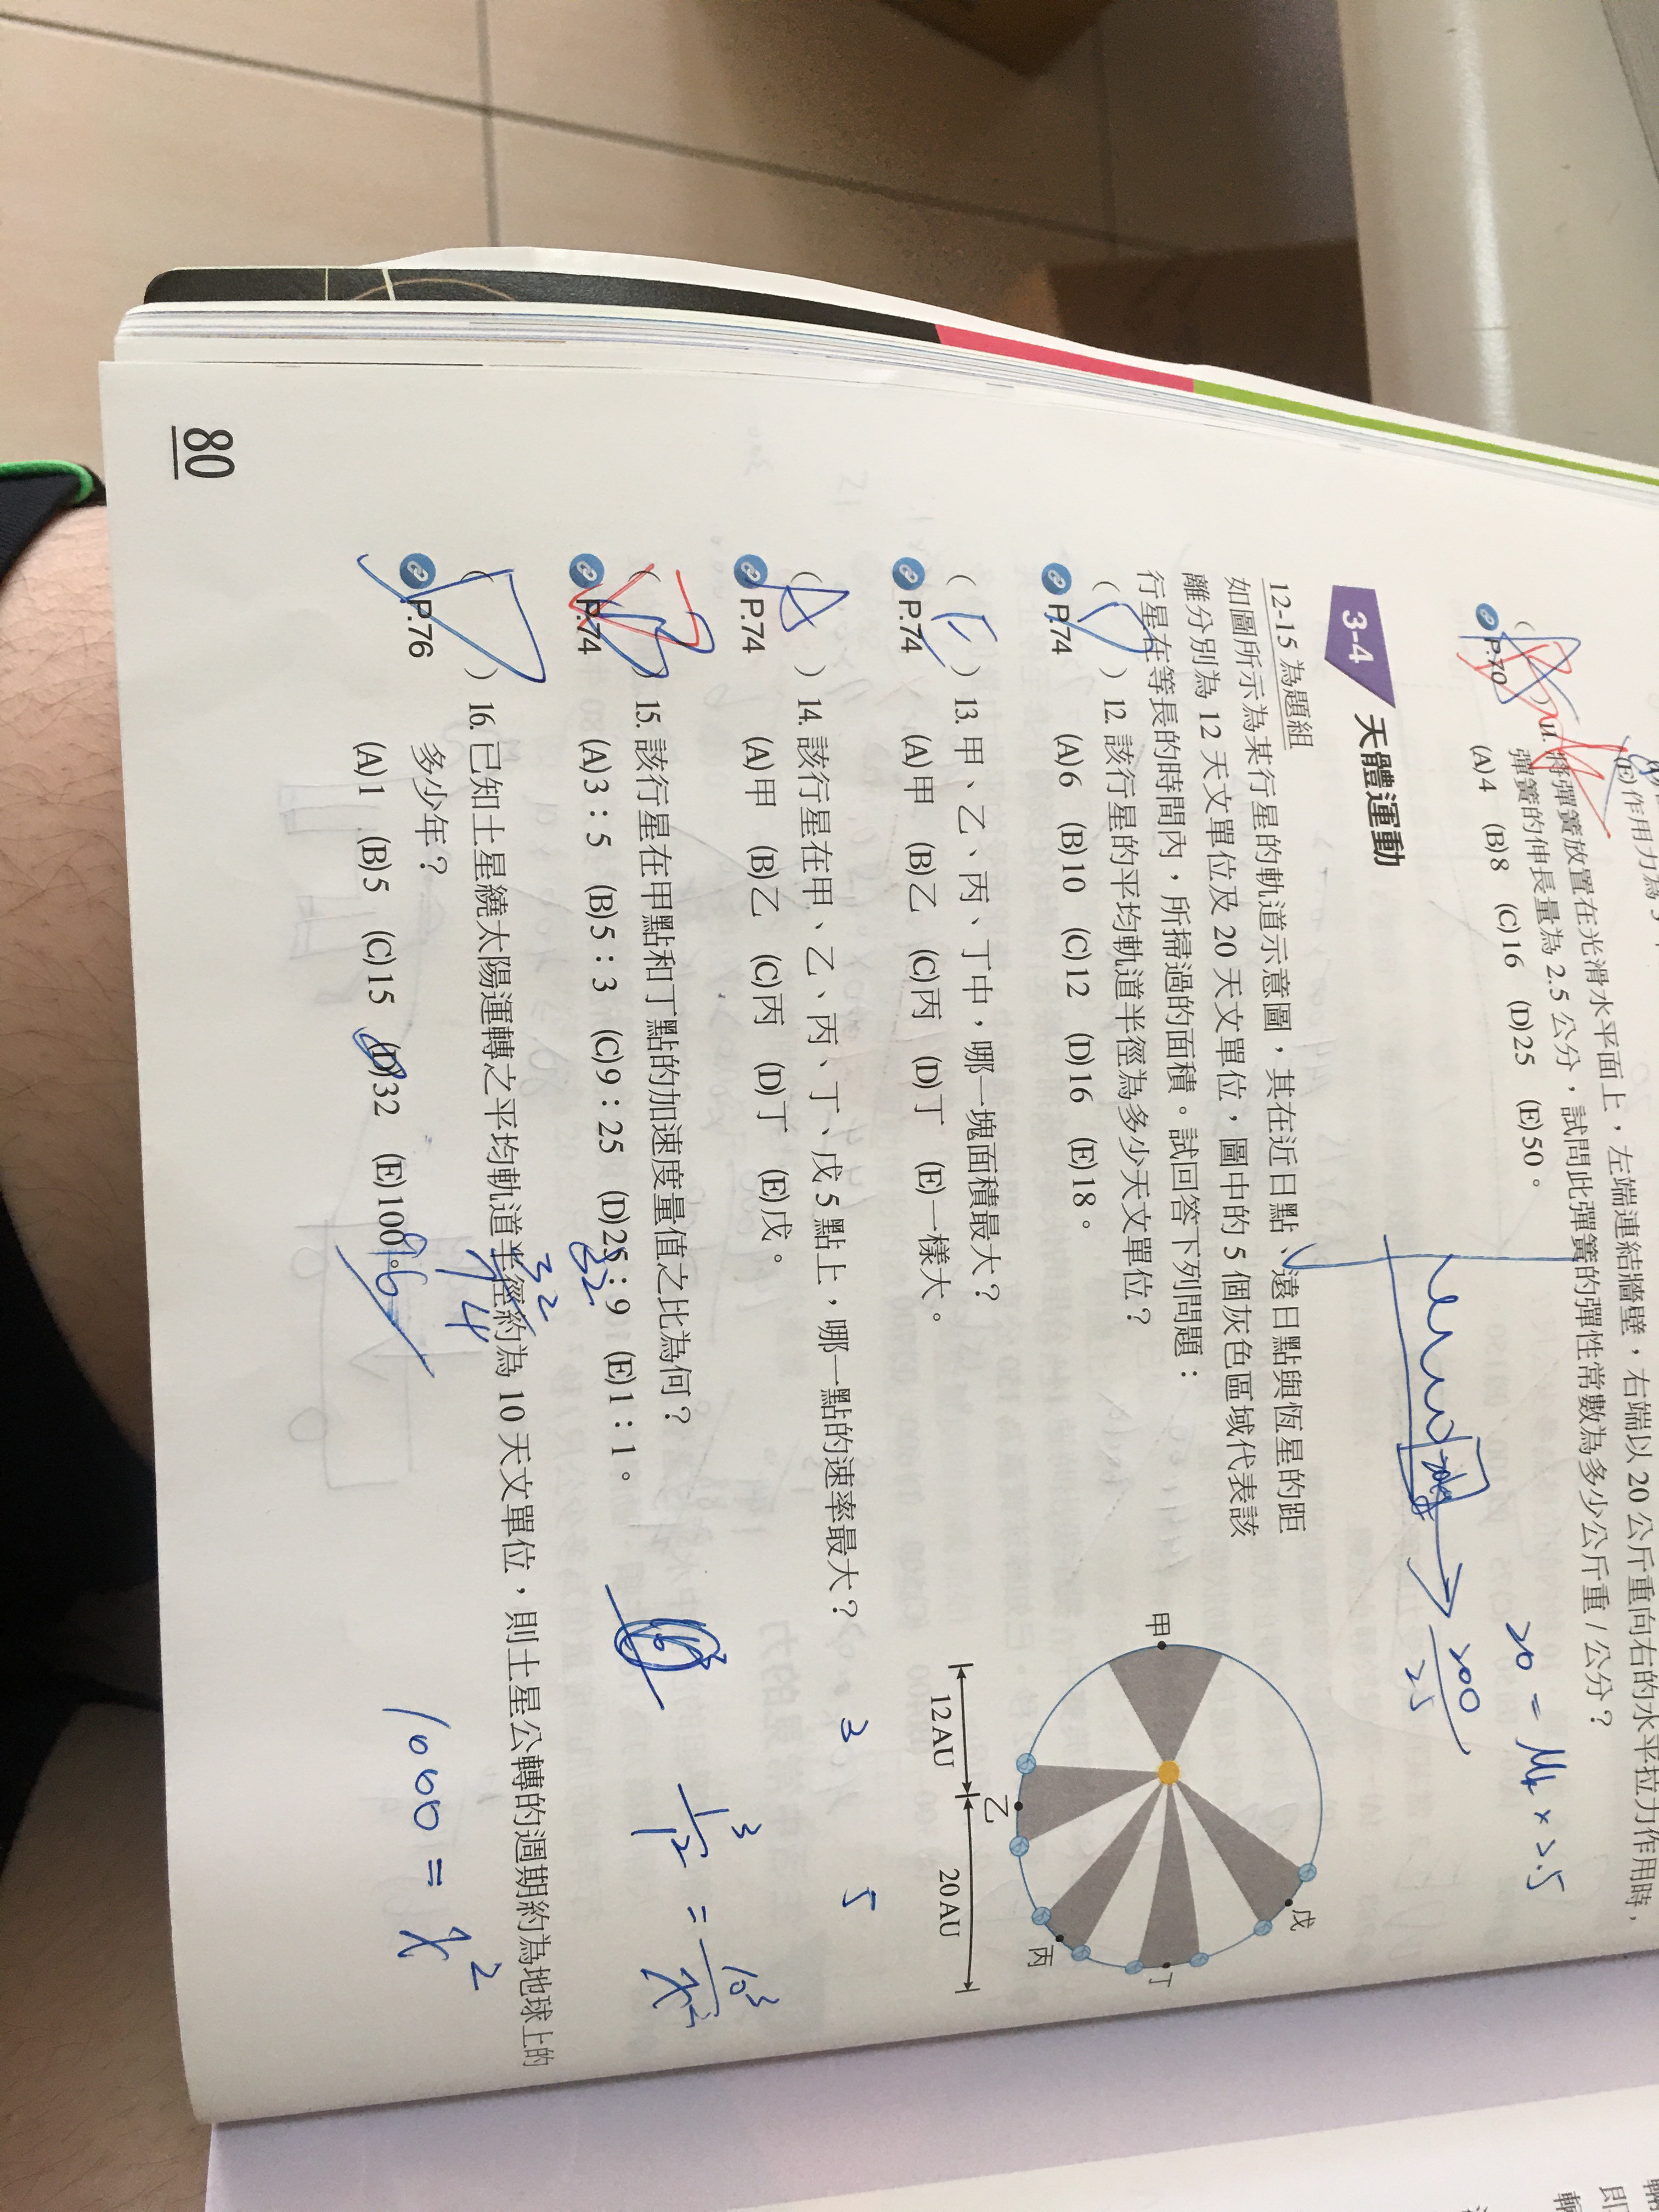 (E)作用力為
11. 將彈簧放置在光滑水平面上，左端連結牆壁，右端以 20 公斤重向右的水平拉力作用時，
彈簧的伸長量為 2.5 公分，試問此彈簧的彈性常數為多少公斤重 / 公分？
P.70
(A)4 (B)8 (C)16 (D)25 (E)50。
200
25
3-4 天體運動
12-15 為題組
如圖所示為某行星的軌道示意圖，其在近日點、遠日點與恆星的距
離分別為 12 天文單位及 20 天文單位，圖中的 5 個灰色區域代表該
行星在等長的時間內，所掃過的面積。試回答下列問題：
( ) 12. 該行星的平均軌道半徑為多少天文單位？
P.74 (A)6 (B)10 (C)12 (D)16 (E)18。
(E) 13. 甲、乙、丙、丁中，哪一塊面積最大？
P.74 (A)甲 (B)乙 (C)丙 (D)丁 (E)一樣大。
(A) 14. 該行星在甲、乙、丙、丁、戊 5 點上，哪一點的速率最大？
P.74 (A)甲 (B)乙 (C)丙 (D)丁 (E)戊。
( ) 15. 該行星在甲點和丁點的加速度量值之比為何？
P.74 (A)3：5 (B)5：3 (C)9：25 (D)25：9 (E)1：1。
( ) 16. 已知土星繞太陽運轉之平均軌道半徑約為 10 天文單位，則土星公轉的週期約為地球上的
多少年？
P.76 (A)1 (B)5 (C)15 (D)32 (E)100。
甲
乙
丙
丁
戊
12AU
20AU
3 5
32
1000 = x²
80